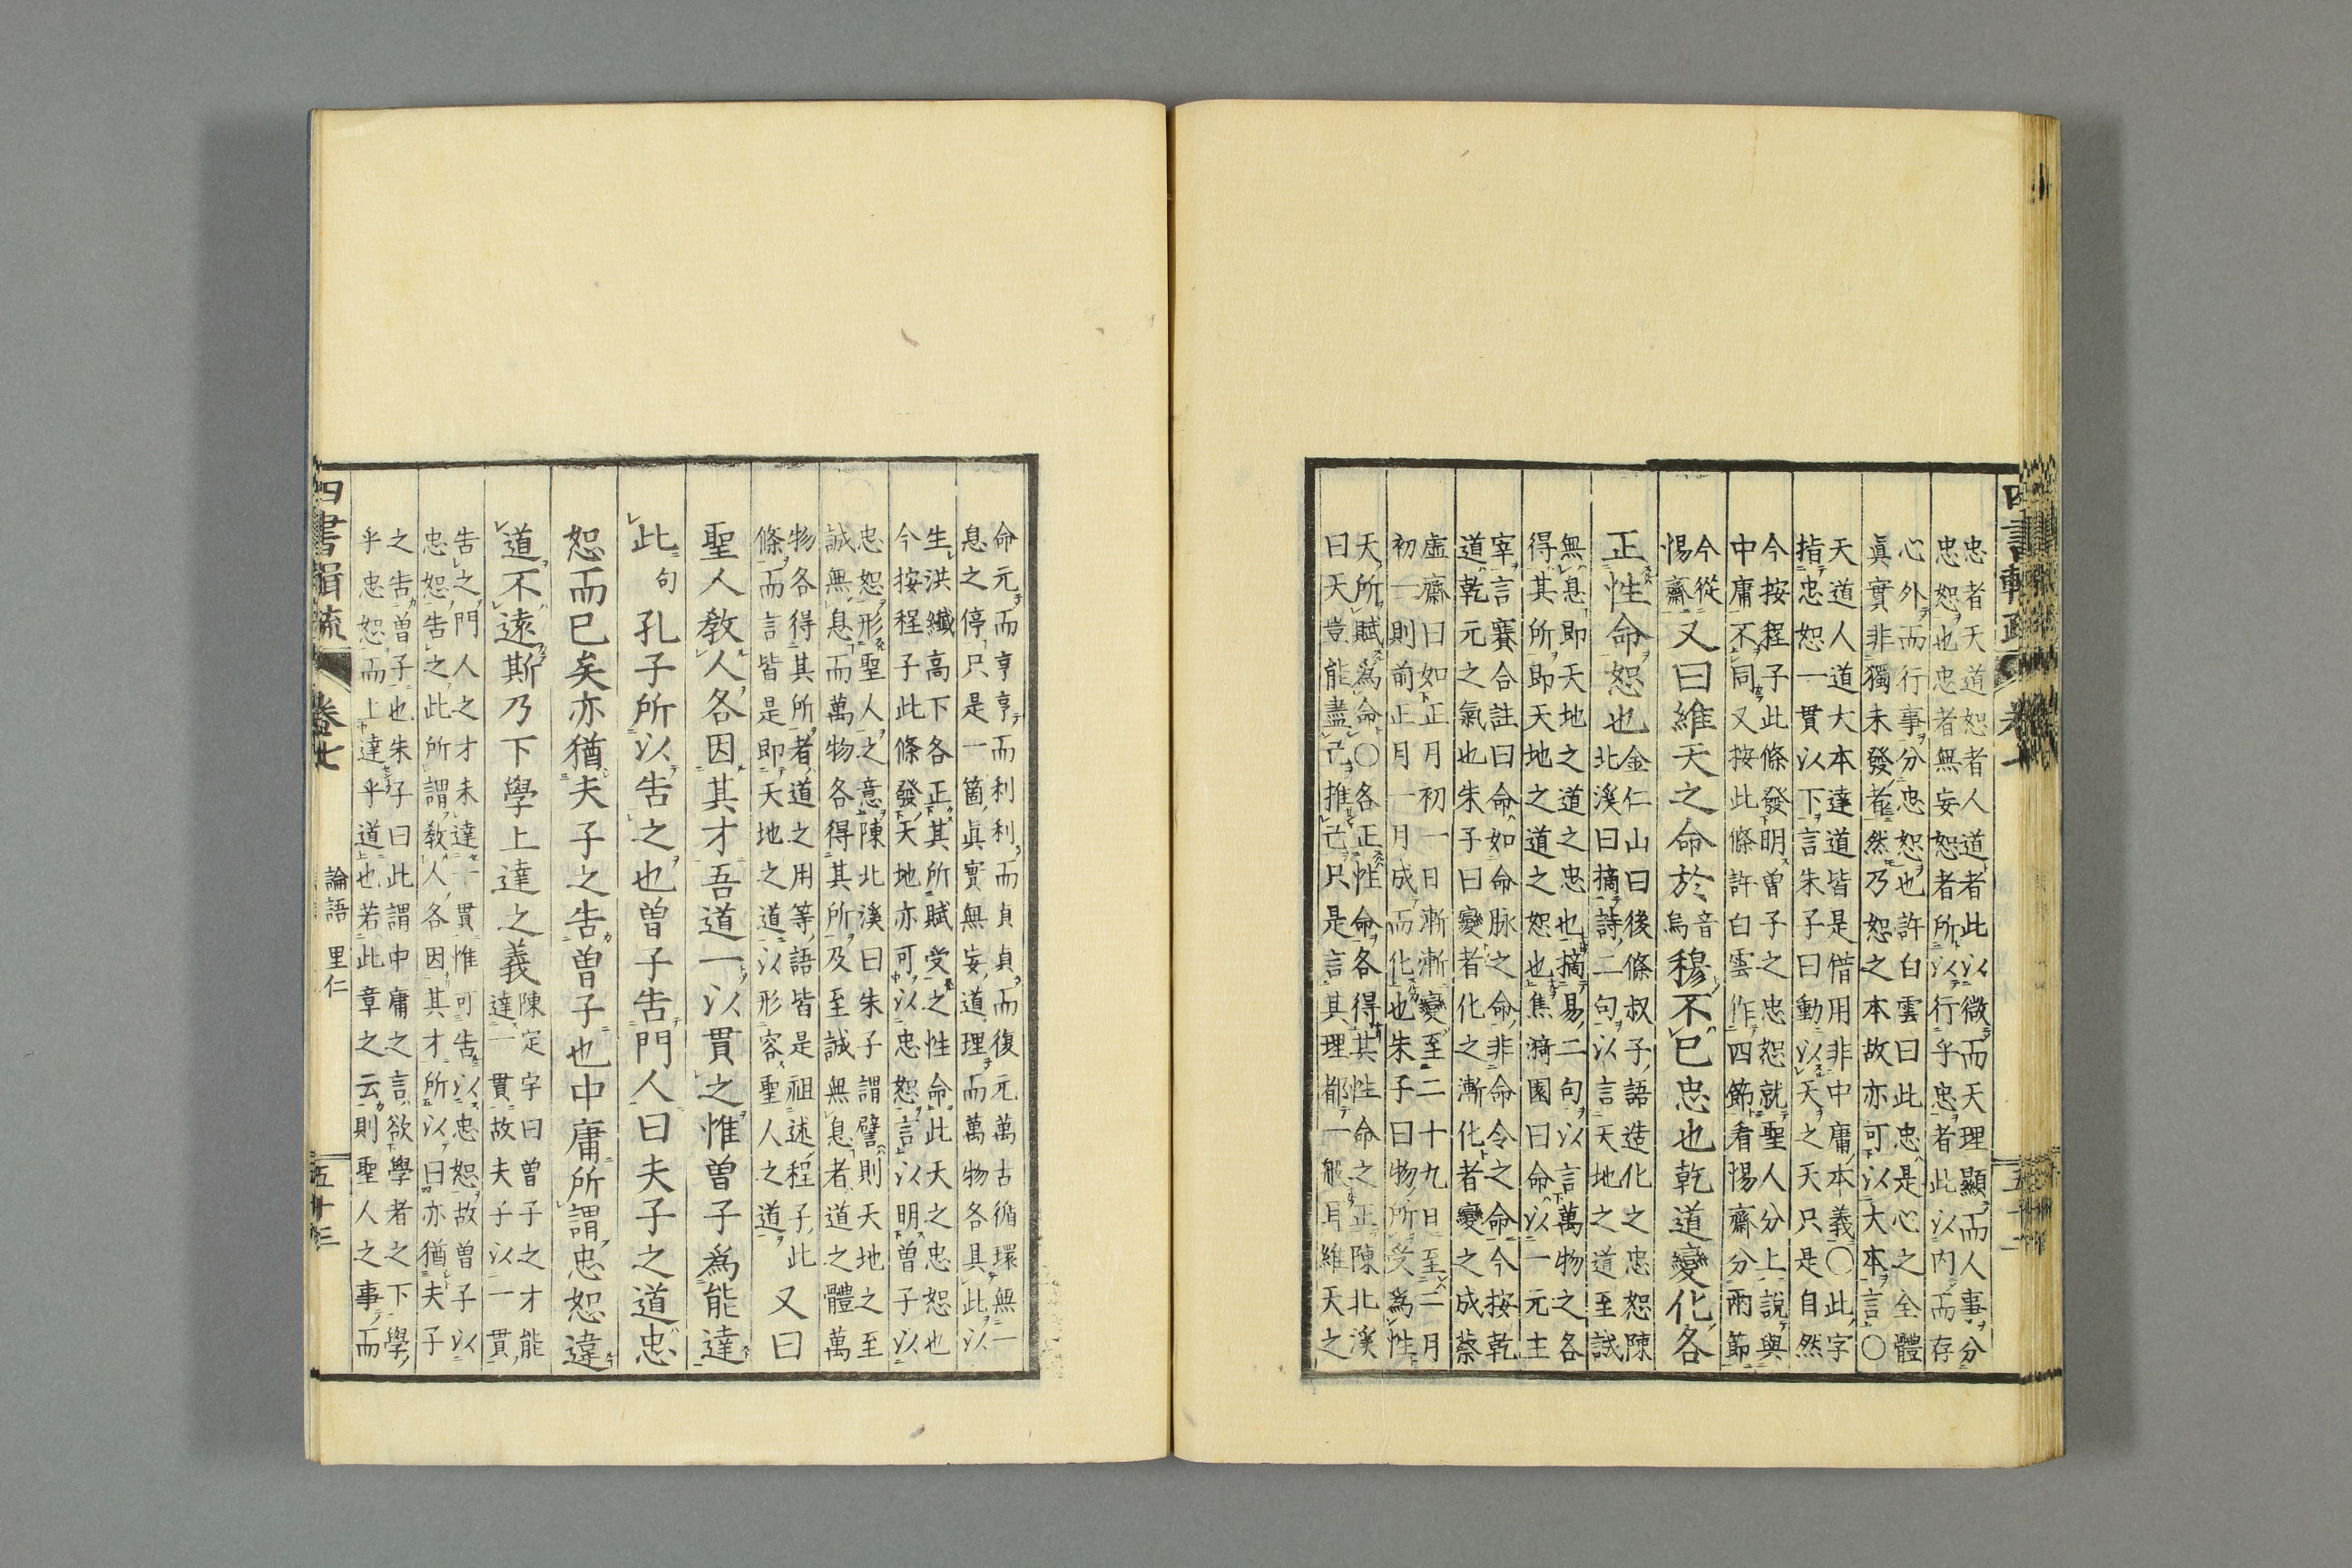 忠者天道恕者人道者此以微而天理顯而人事分
忠恕也忠者無妄恕者所以行乎忠者此以内而存
心外而行事分忠恕也許白雲曰此忠是心之全體
眞實非獨未發者然乃恕之本故亦可以大本言〇
天道人道大本達道皆是借用非中庸本義〇此字
指忠恕一貫以下言朱子曰動以天之天只是自然
今按程子此條發明曽子之忠恕就聖人分上說與
中庸不同又按此條許白雲作四節看惕齋分兩節
今從
惕齋
又曰維天之命於
音
烏
穆不已忠也乾道變化各
正性命恕也
金仁山曰後條叔子語造化之忠恕陳
北溪曰摘詩二句以言天地之道至誠
無息即天地之道之忠也摘易二句以言萬物之各
得其所即天地之道之恕也焦漪園曰命以一元主
宰言蹇合註曰命如命脉之命非命令之命今按乾
道乾元之氣也朱子曰變者化之漸化者變之成蔡
虚齋曰如正月初一日漸漸變至二十九日至二月
初一則前正月一月成而化也朱子曰物所受為性
天所賦為命〇各正性命各得其性命之正陳北溪
曰天豈能盡己推己只是言其理都一般耳維天之
命元而亨亨而利利而貞貞而復元萬古循環無一
息之停只是一箇眞實無妄道理而萬物各具此以
生洪纎高下各正其所賦受之性命此天之忠恕也
今按程子此條發天地亦可以忠恕言以明曽子以
忠恕形聖人之意陳北溪曰朱子謂譬則天地之至
誠無息而萬物各得其所及至誠無息者道之體萬
物各得其所者道之用等語皆是祖述程子此
條而言皆是即天地之道以形容聖人之道
又曰
聖人敎人各因其才吾道一以貫之惟曽子爲能達
此
句
孔子所以告之也曽子告門人曰夫子之道忠
恕而已矣亦猶夫子之告曽子也中庸所謂忠恕違
道不遠斯乃下學上達之義
陳定宇曰曽子之才能
達一貫故夫子以一貫
告之門人之才未達一貫惟可告以忠恕故曽子以
忠恕告之此所謂敎人各因其才所以曰亦猶夫子
之告曽子也朱子曰此謂中庸之言欲學者之下學
乎忠恕而上達乎道也若此章之云則聖人之事而
四書輯疏
卷七
論語 里仁
五十三